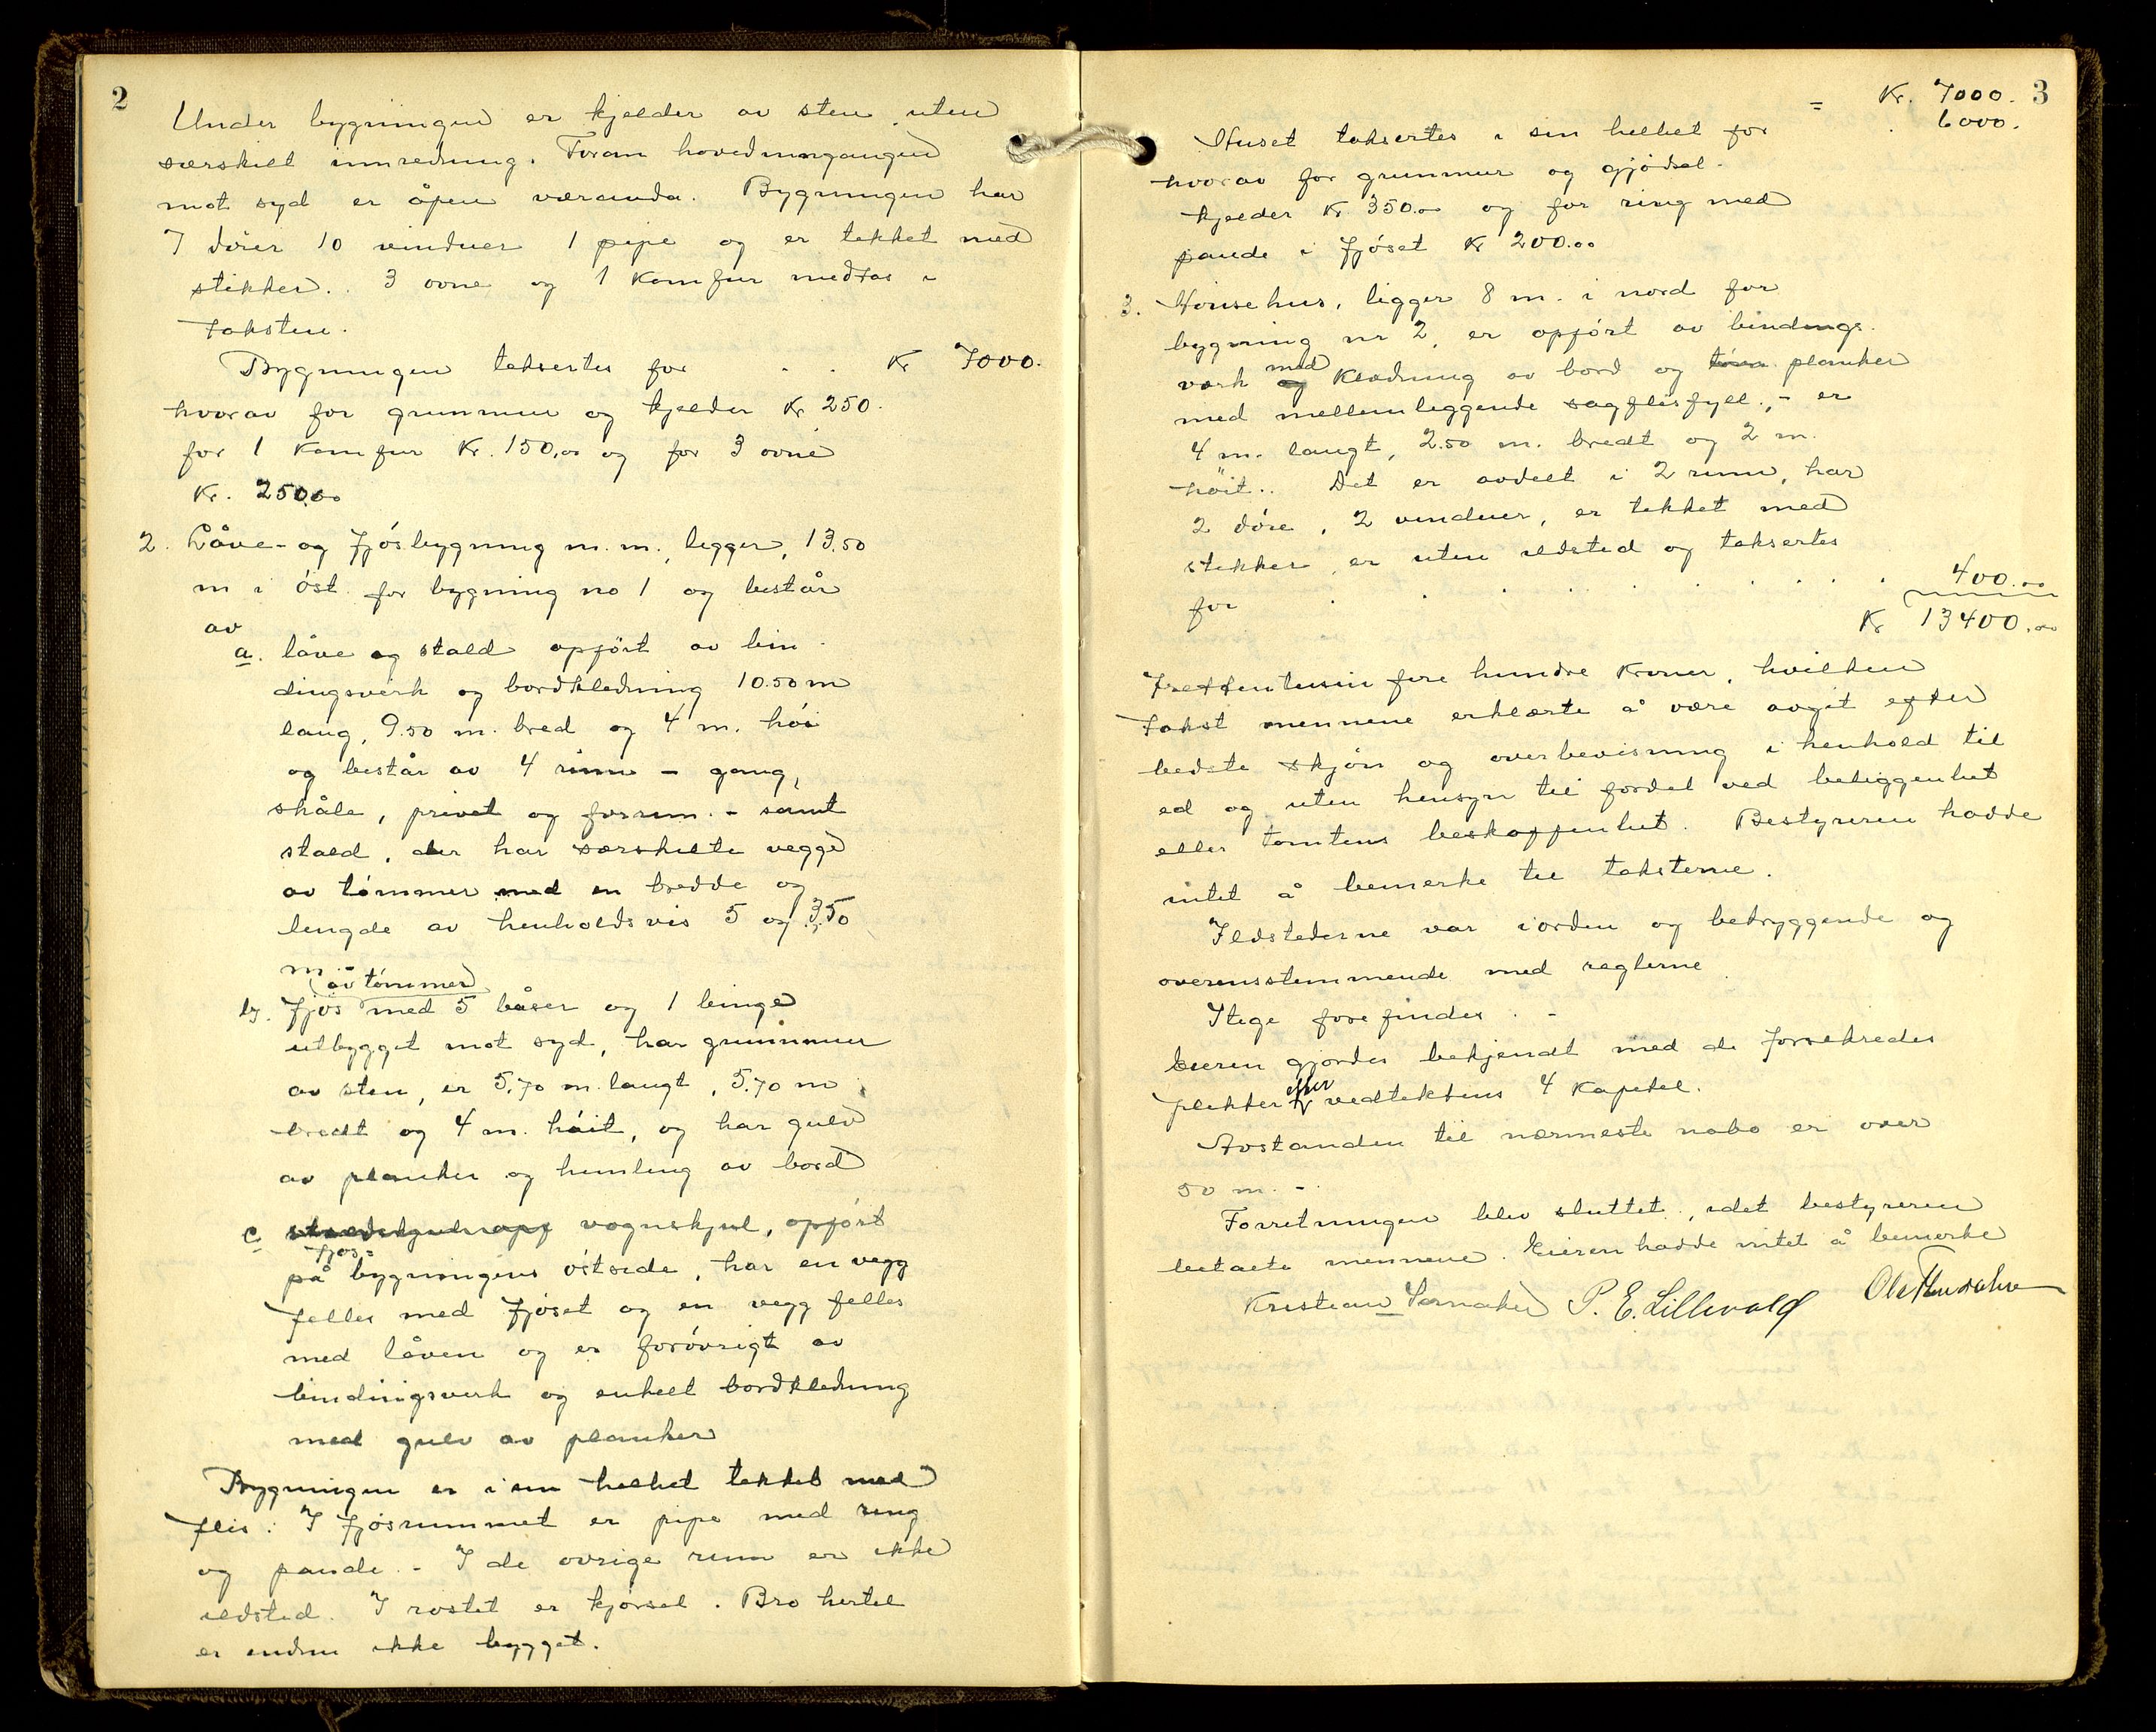 2
Under bygningen er kjelder av sten uten
særskilt innredning. Foran hovedinngangen
mot syd er åpen veranda. Bygningen har
7 dører 10 vinduer 1 pipe og er tekket med
stikker. 3 ovne og 1 komfur medtas i
taksten.
Bygningen taksertes for . . Kr 7000.
hvorav for grunmur og kjelder Kr. 250.
for 1 komfur Kr. 150,00 og for 3 ovne
Kr. 250.00
2. Låve- og fjösbygning m.m. ligger, 13.50
m i öst for bygning no 1 og består
av
a. låve og stald opfört av bin-
dingsverk og bordkledning 10.50 m
lang, 9.50 m. bred og 4 m. höi
og består av 4 rum - gang,
skåle, privet og forrum. - samt
stald, der har særskilte vegge
av tömmer med en bredde og
lengde av henholdsvis 5 og 3.50
m. -
av tömmer
b. Fjös med 5 båser og 1 binge
utbygget mot syd, har grunmur
av sten, er 5.70 m. langt, 5.70 m
bredt og 4 m. höit, og har gulv
av planker og himling av bord
c vognskjul, opfört
fjös-
på bygningens östside, har en vegg
felles med fjöset og en vegg felles
med låven og er forövrigt av
bindingsverk og enkelt bordkledning
med gulv av planker
Bygningen er i sin helhet tekket med
flis. I fjösrummet er pipe med ring
og pande. - I de övrige rum er ikke
ildsted. I röstet er kjörsel. Bro hertil
er endnu ikke bygget.
= Kr. 7000. 3
6000.
Huset taksertes i sin helhet for
hvorav for grunmur og gjödsel-
kjelder Kr 350.00 og for ring med
pande i fjöset Kr 200.00
3. Hönsehus, ligger 8 m. i nord for
bygning nr 2, er opfört av bindings-
med
verk og klædning av bord og planker
med mellemliggende sagflisfyll., - er
4 m. langt, 2.50 m. bredt og 2 m.
höit.. Det er avdelt i 2 rum, har
2 döre, 2 vinduer, er tekket med
stikker, er uten ildsted og taksertes
for . . . . . . . . 400.00
Kr 13400.00
Trettentusin fire hundre kroner, hvilken
takst mennene erklærte å være avgit efter
bedste skjön og overbevisning i henhold til
ed og uten hensyn til fordel ved beliggenhet
eller tomtens beskaffenhet. Bestyreren hadde
intet å bemerke til taksterne.
Ildstederne var i orden og betryggende og
overensstemmende med reglerne.
Stige forefindes. -
Eieren gjordes bekjendt med de forsikredes
efter
plikter vedtektens 4 kapitel.
Avstanden til nærmeste nabo er over
50 m. -
Forretningen blev sluttet, idet bestyreren
betalte mennene. Eieren hadde intet å bemerke
Kristian P. E. Lillevold Ole